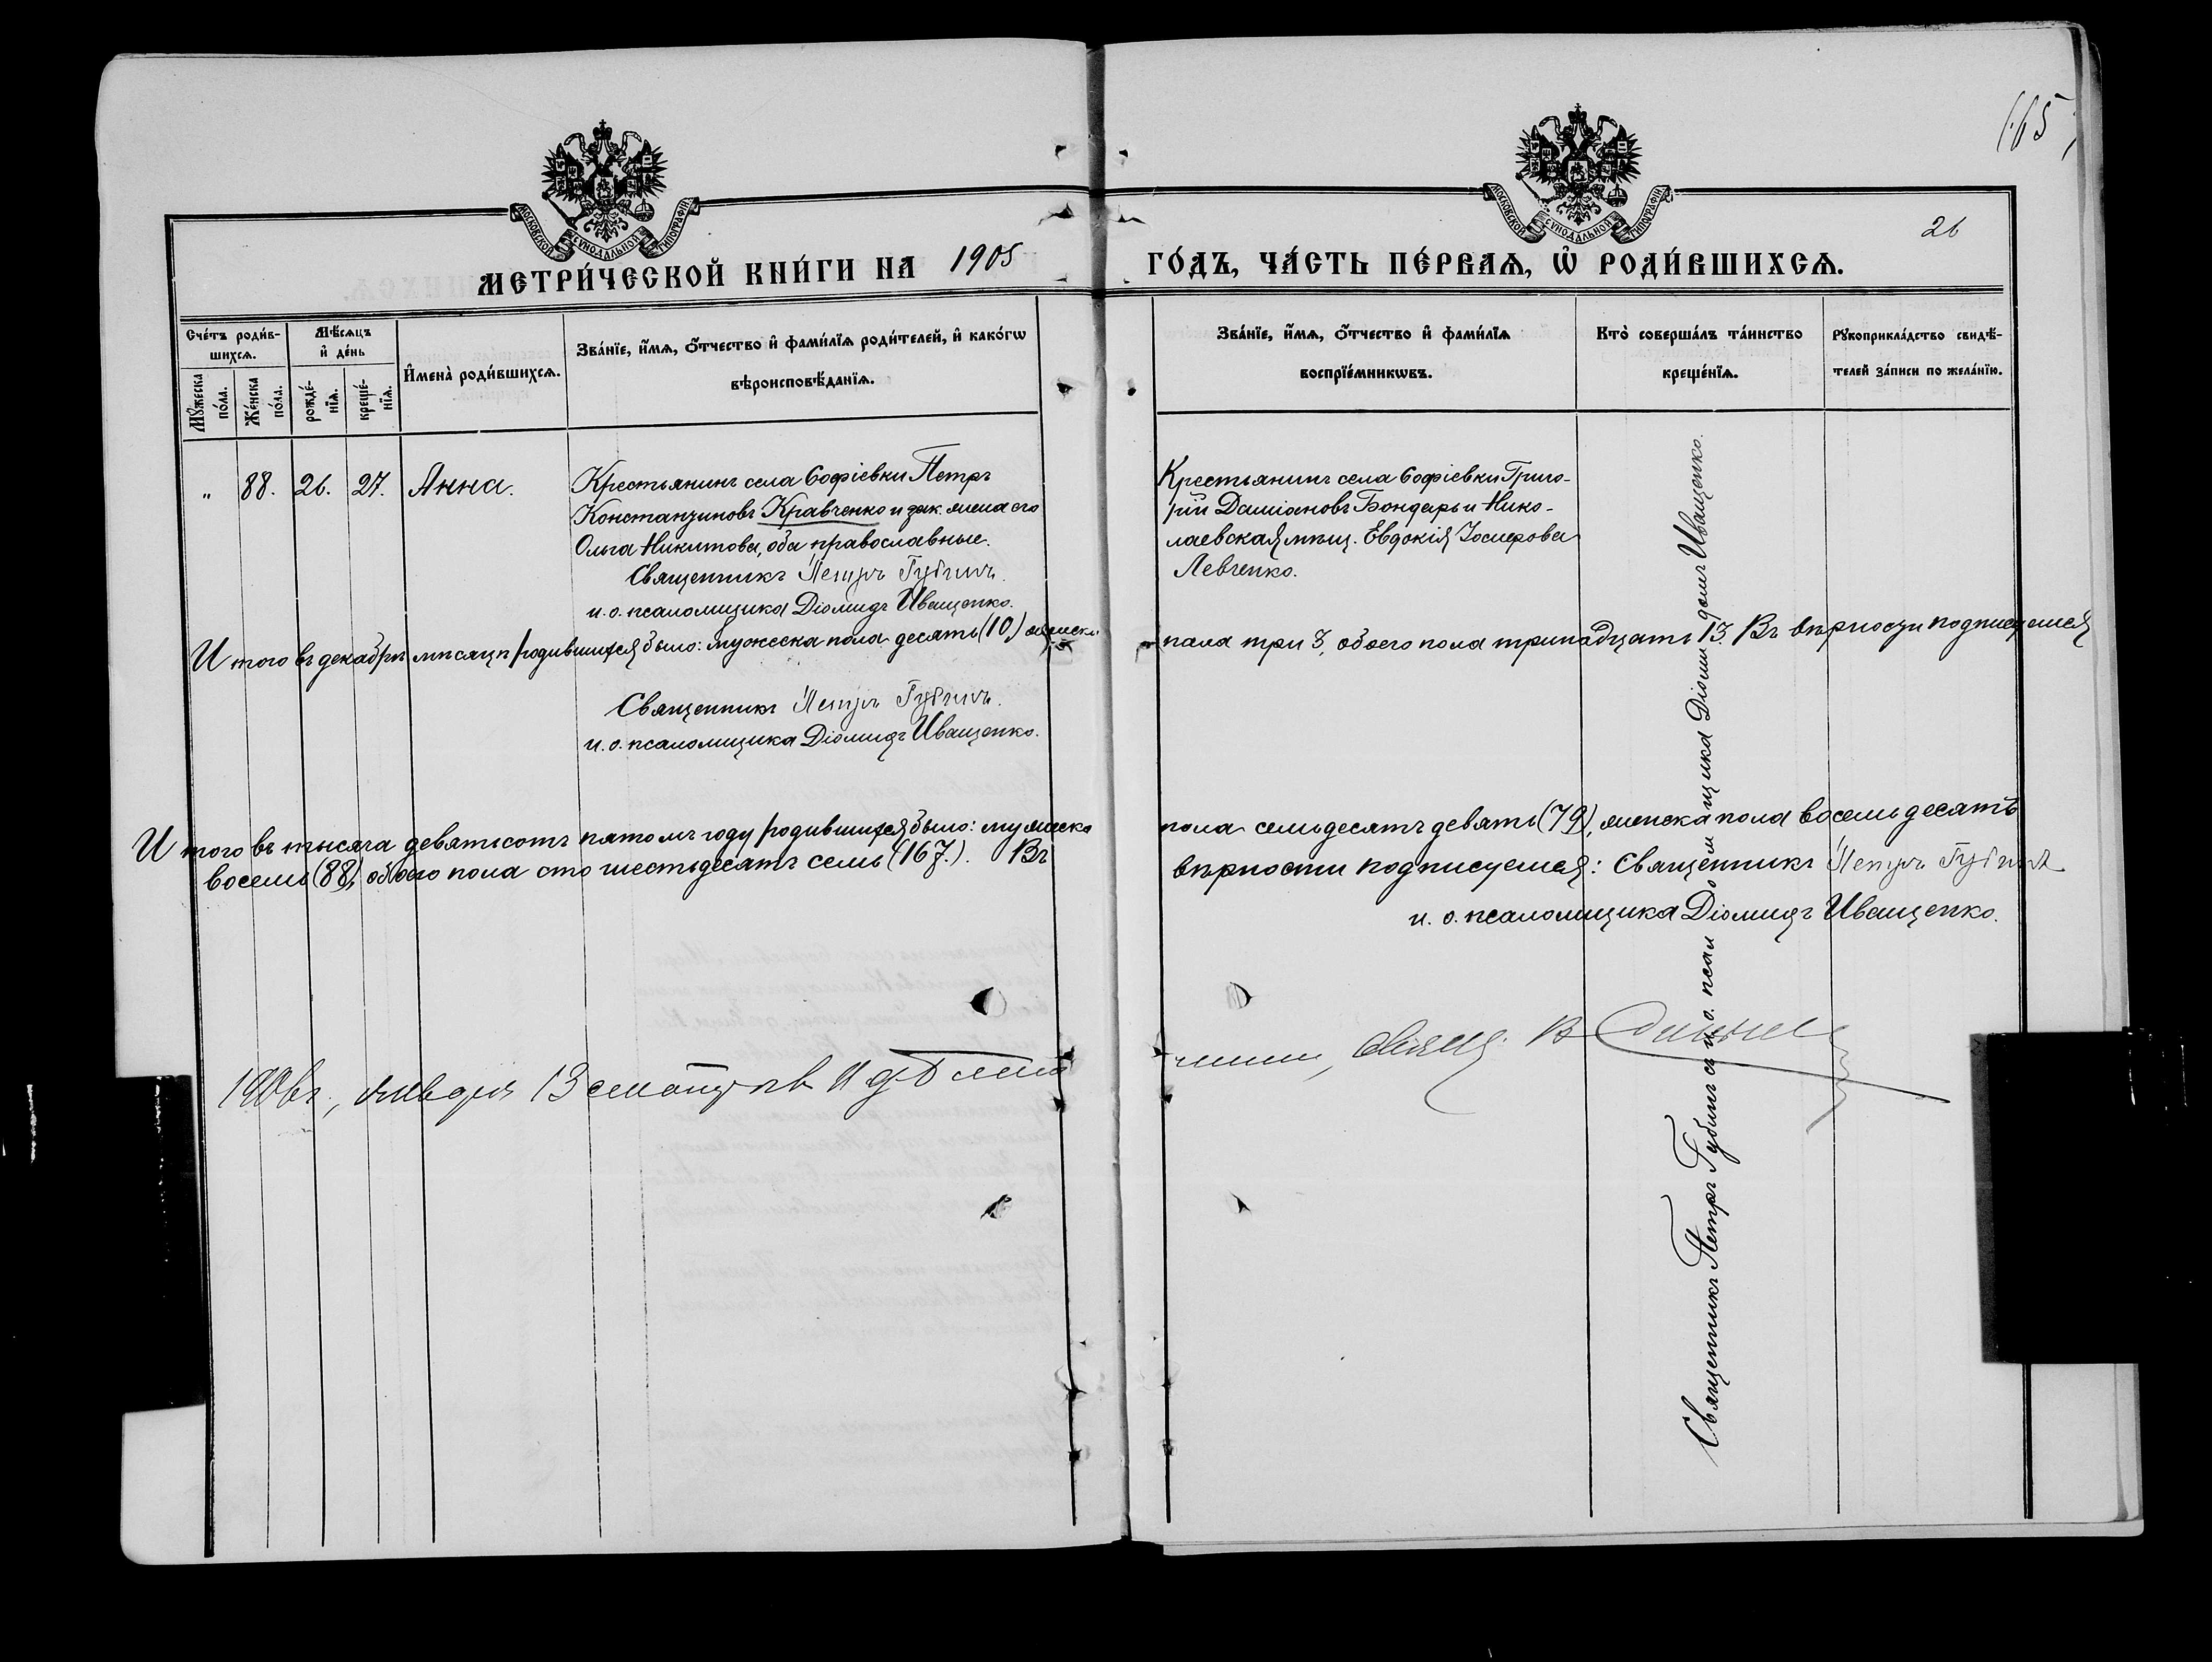 165
26
МОСКОВСКОЙ СѴНОДАЛЬНОЙ ТИПОГРАФІИ
МОСКОВСКОЙ СѴНОДАЛЬНОЙ ТИПОГРАФІИ
МЕТРИ́ЧЕСКОЙ КНИ́ГИ НА 1905 ГО́ДЪ, ЧА́СТЬ ПЕ́РВАѦ, Ѡ҆ РОДИ́ВШИХСѦ.
Сче́тъ роди́в-
шихсѧ.
Мꙋ́жеска по́ла.
Же́нска по́ла.
Мѣ́сѧцъ
и҆ де́нь
рожде́-
нїѧ.
креще́-
нїѧ.
И҆мена̀ роди́вшихсѧ.
Зва́нїе, и҆́мѧ, ѻ҆́тчество и҆ фами́лїѧ роди́телей, и҆ како́гѡ
вѣроисповѣ́данїѧ.
Зва́нїе, и҆́мѧ, ѻ҆́тчество и҆ фами́лїѧ
воспрїе́мникѡвъ.
Кто̀ соверша́лъ та́инство
креще́нїѧ.
Рꙋкоприкла́дство свидѣ́-
телей за́писи по жела́нїю.
„ 88. 26. 27. Анна.
Крестьянинъ села Софіевки Петръ
Константиновъ Кравченко и зак. жена его
Ольга Никитова, оба православные.
Священникъ Петръ Губинъ.
и. о. псаломщика Діомидъ Иващенко.
Крестьянинъ села Софіевки Григо-
рій Даміановъ Бондарь и Нико-
лаевская мѣщ. Евдокія Іосифова
Левченко.
Итого въ декабрѣ мѣсяцѣ родившихся было: мужеска пола десять (10) женска пола три 3, обоего пола тринадцать 13. Въ вѣрности подписуемся
Священникъ Петръ Губинъ.
и. о. псаломщика Діомидъ Иващенко.
Итого въ тысяча девятьсотъ пятомъ году родившихся было: мужеска пола семьдесятъ девять (79), женска пола восемьдесятъ
восемь (88), обоего пола сто шестьдесятъ семь (167.). Въ вѣрности подписуемся: Священникъ Петръ Губинъ
и. о. псаломщика Діомидъ Иващенко.
1906 г., января 13
Священникъ Петръ Губинъ съ и. о. псаломщика Діомидомъ Иващенко.